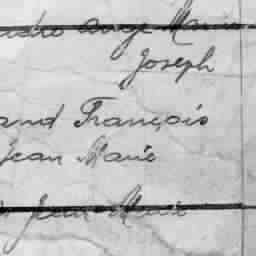 Ange Marie
Joseph
and François
Jean Marie
Jean Marie